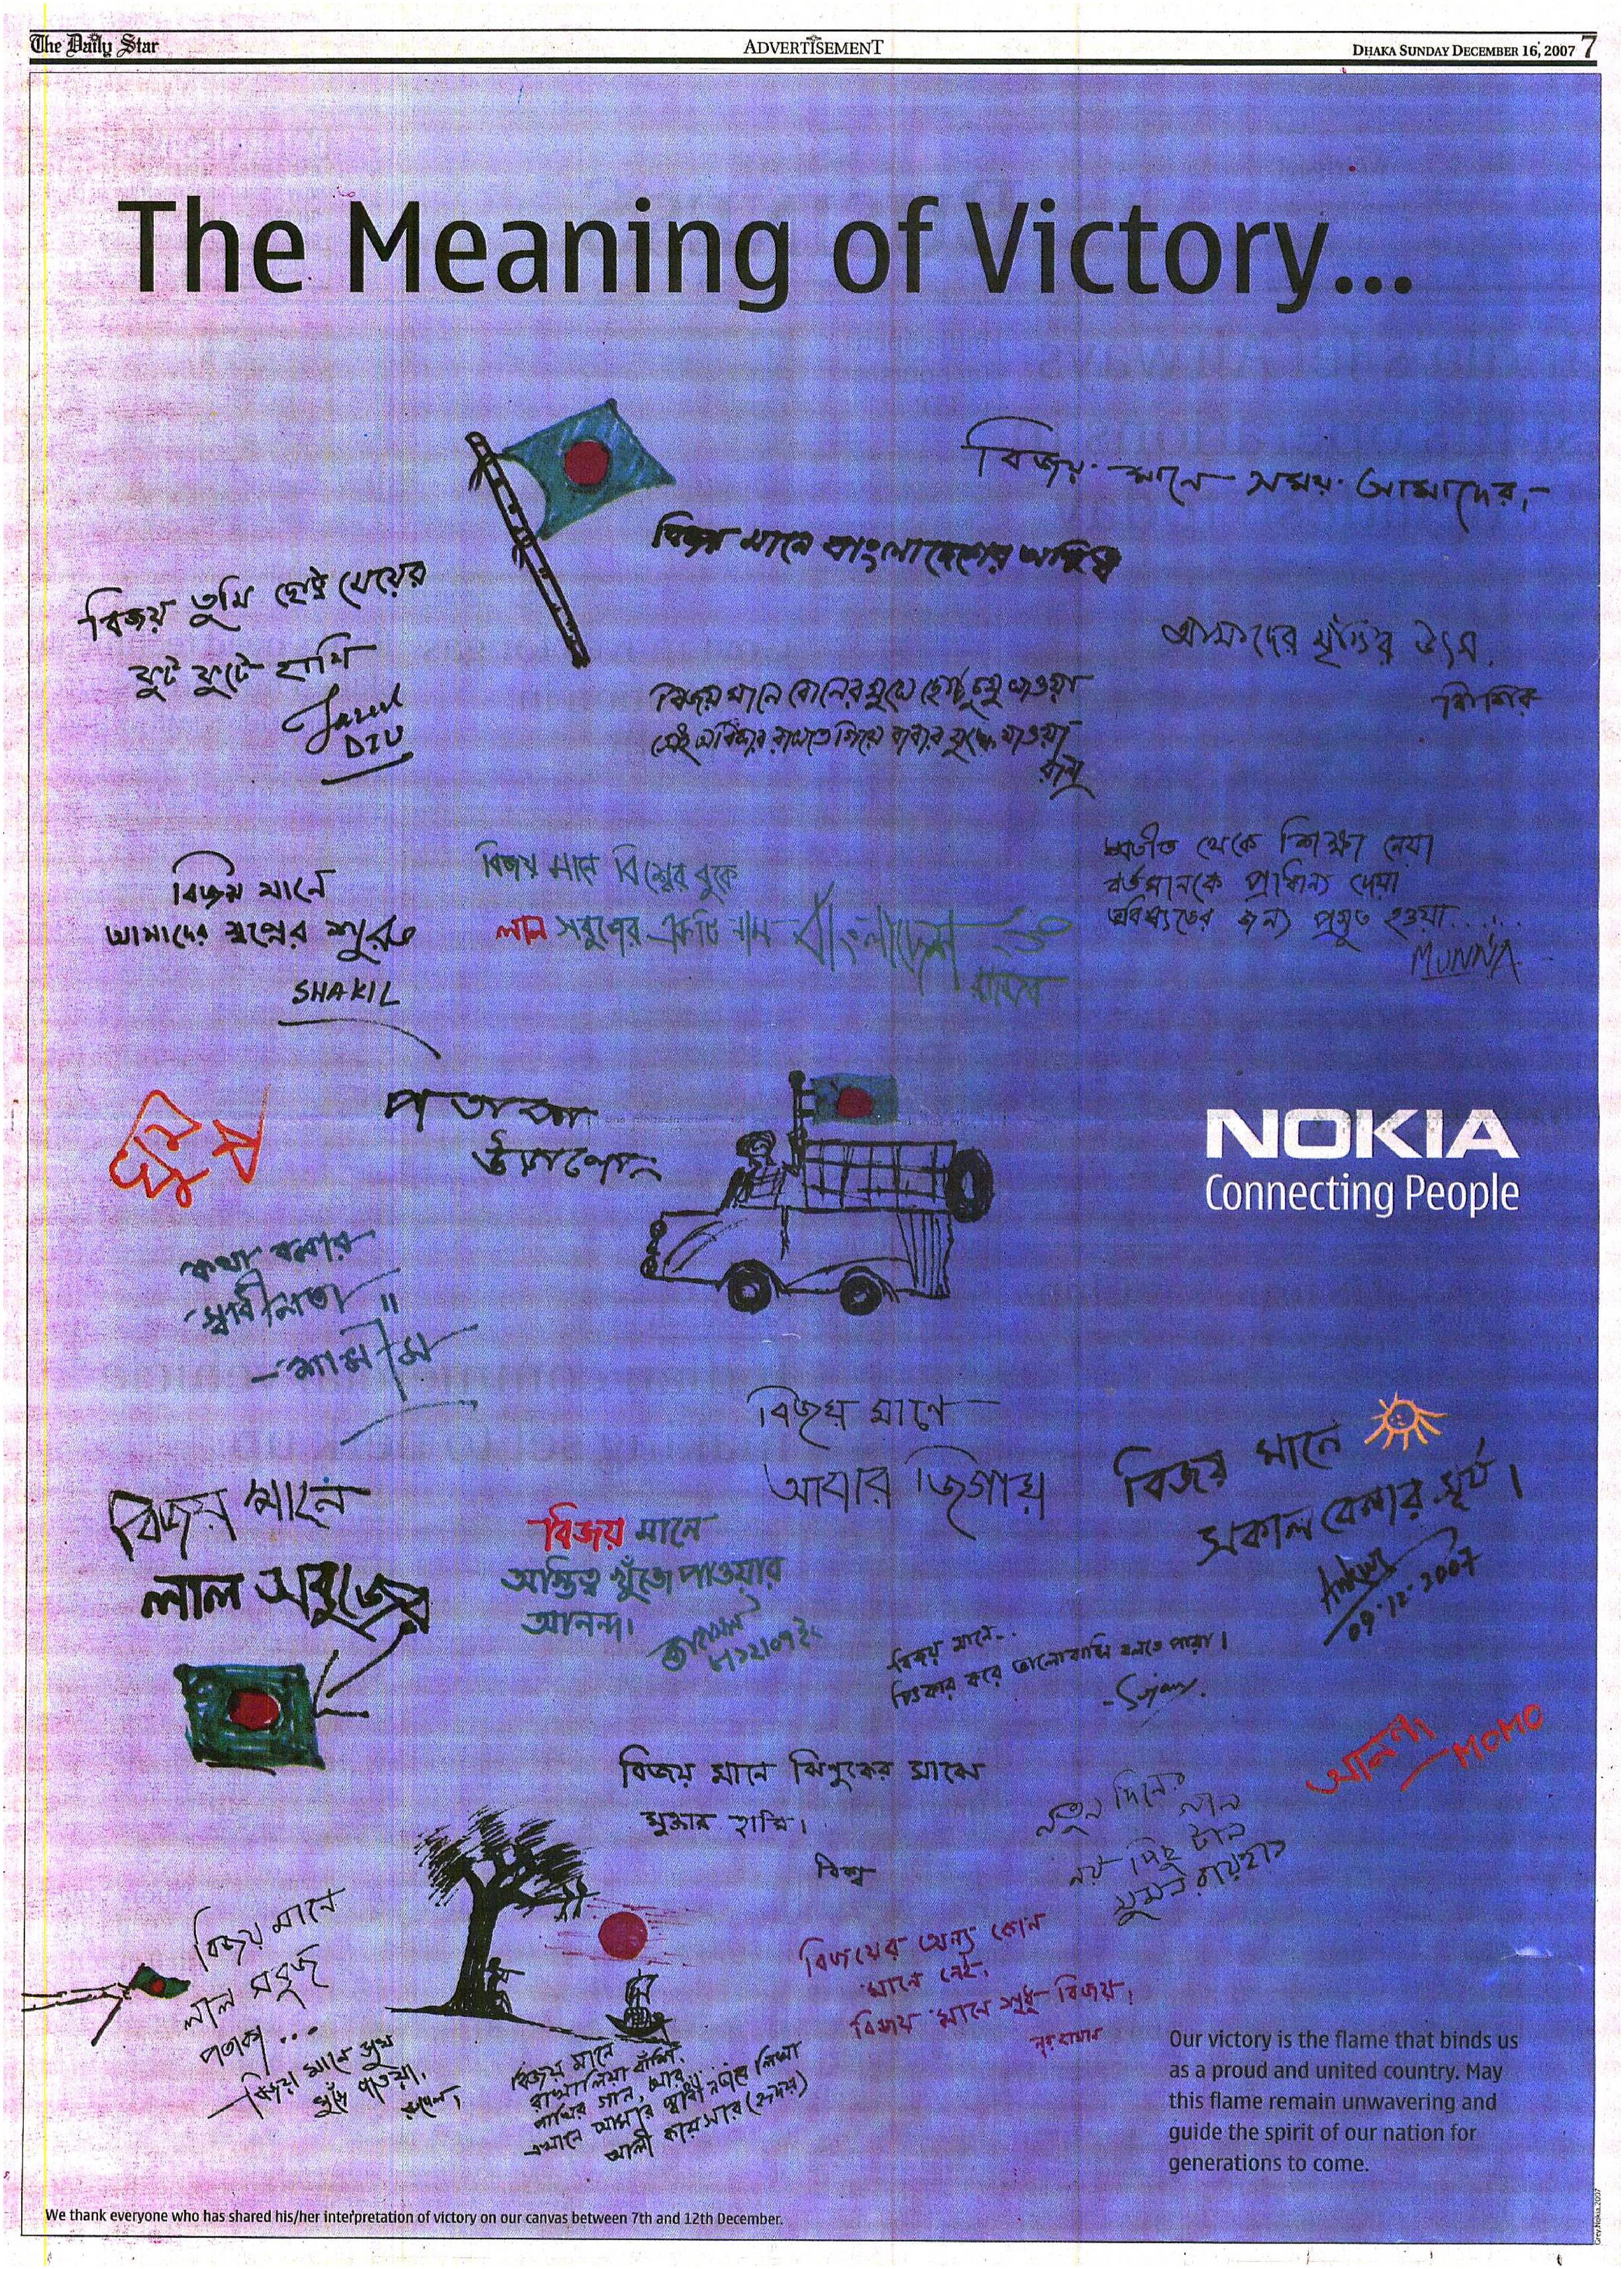 The Daily Star
ADVERTISEMENT
DHAKA SUNDAY DECEMBER 16, 2007 7
The Meaning of Victory...
বিজয় মানে সময় আমাদের।
বিজয় মানে বাংলাদেশের অস্তিত্ব
বিজয় তুমি ছোট্ট মেয়ের
ফুট ফুটে হাসি
DIU
আমাদের মুক্তির উৎস
শিশির
বিজয় মানে বোনের মুখে ছোট্ট চুমু খাওয়া
সেই অধিকার রাখতে গিয়ে বাবার যুদ্ধে যাওয়া
রানু
বিজয় মানে
আমাদের স্বপ্নের শুরু
SHAKIL
বিজয় মানে বিশ্বের বুকে
লাল সবুজের একটি নাম বাংলাদেশ
অতীত থেকে শিক্ষা নেয়া
বর্তমানকে প্রাধান্য দেয়া
ভবিষ্যতের জন্য প্রস্তুত হওয়া.....
MUNNA
পতাকা
উত্তোলন
NOKIA
Connecting People
কথা বলার
স্বাধীনতা ॥
- শামীম
বিজয় মানে
আবার জিগায়
বিজয় মানে
সকাল বেলার সূর্য।
09.12.2007
বিজয় মানে
লাল সবুজের
বিজয় মানে
অস্তিত্ব খুঁজে পাওয়ার
আনন্দ।
বিজয় মানে...
চিৎকার করে ভালোবাসি বলতে পারা।
- Sujan
আনন্দ
- MOMO
বিজয় মানে ঝিনুকের মাঝে
মুক্তার হাসি।
বিশ্ব
নতুন দিনের গান
নয় পিছু টান
সুমন রায়হান
বিজয় মানে
লাল সবুজ
পতাকা...
বিজয়ের অন্য কোন
মানে নেই।
বিজয় মানে শুধু বিজয়।
নূর হাসান
বিজয় মানে সুখ
খুঁজে পাওয়া।
রুবেল।
বিজয় মানে
রাখালিয়া বাঁশি,
পাখির গান, আর
এখানে আমার স্বাধীনতা লিখা
আলী কায়সার (হৃদয়)
Our victory is the flame that binds us
as a proud and united country. May
this flame remain unwavering and
guide the spirit of our nation for
generations to come.
We thank everyone who has shared his/her interpretation of victory on our canvas between 7th and 12th December.
Grey.Nokia.2007